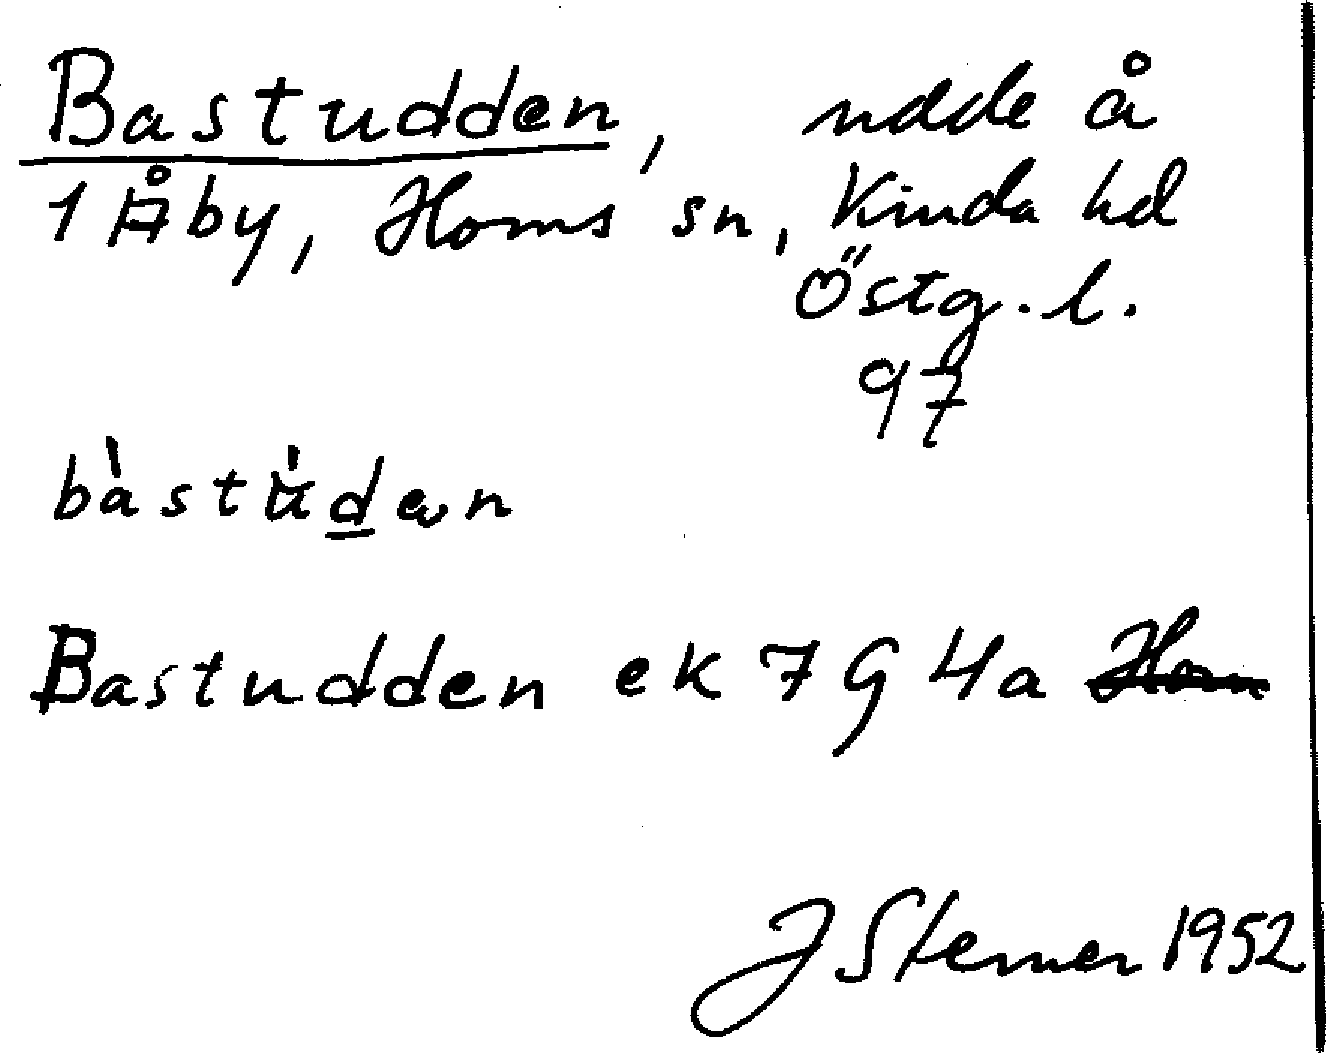 Bastudden, udde å
1 Åby, Horns sn, Kinda hd
Östg. l.
97
bàstùdən
Bastudden ek 7 G 4a Horn
J Sterner 1952